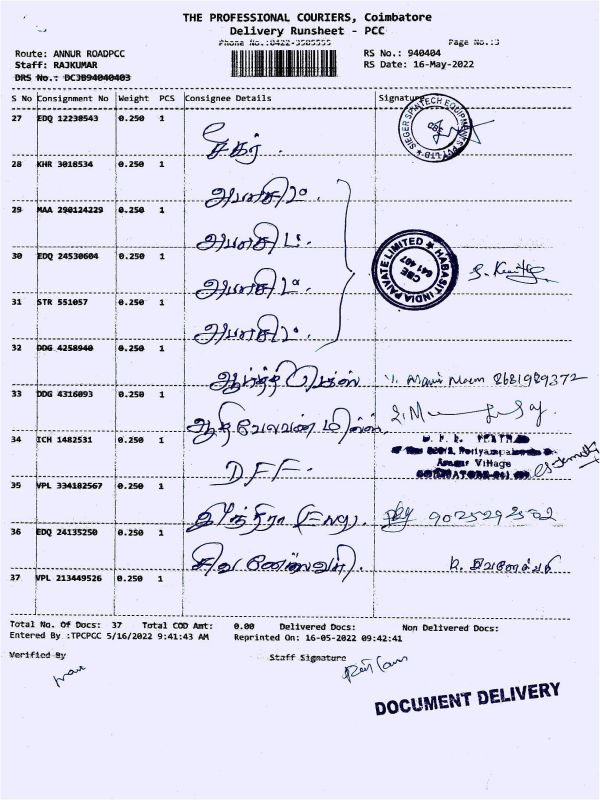 THE PROFESSIONAL COURIERS, Coimbatore
Delivery Runsheet - PCC
Phone No.:0422-3505555
Page No.:3
Route: ANNUR ROADPCC
RS No.: 940404
Staff: RAJKUMAR
RS Date: 16-May-2022
DRS No.: DC3B94040403
S No Consignment No Weight PCS Consignee Details Signature
27 EDQ 12238543 0.250 1
SIEGER SPINTECH EQUIPMENTS PVT LTD
சிகர்.
28 KHR 3018534 0.250 1
அபாசிட்.
29 MAA 290124229 0.250 1
அபாசிட்.
HABASIT INDIA PRIVATE LIMITED
CBE
641 407
30 EDQ 24530604 0.250 1
அபாசிட்.
31 STR 551057 0.250 1
அபாசிட்.
32 DDG 4258940 0.250 1
8681989372
33 DDG 4316093 0.250 1
ஆதிவேலவன் மில்ஸ்
34 ICH 1482531 0.250 1
Annur Village
DFF.
35 VPL 334182567 0.250 1
இந்திரா (Eng).
36 EDQ 24135250 0.250 1
37 VPL 213449526 0.250 1
Total No. Of Docs: 37 Total COD Amt: 0.00 Delivered Docs: Non Delivered Docs:
Entered By :TPCPGC 5/16/2022 9:41:43 AM Reprinted On: 16-05-2022 09:42:41
Verified By Staff Signature
DOCUMENT DELIVERY